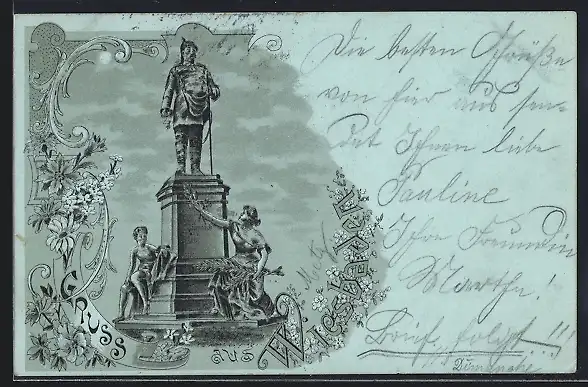 Gruss aus Wiesbaden
Die besten Grüße
von hier aus sen-
det Ihnen liebe
Pauline
Ihre Freundin
Martha!
Brief folgt!!!